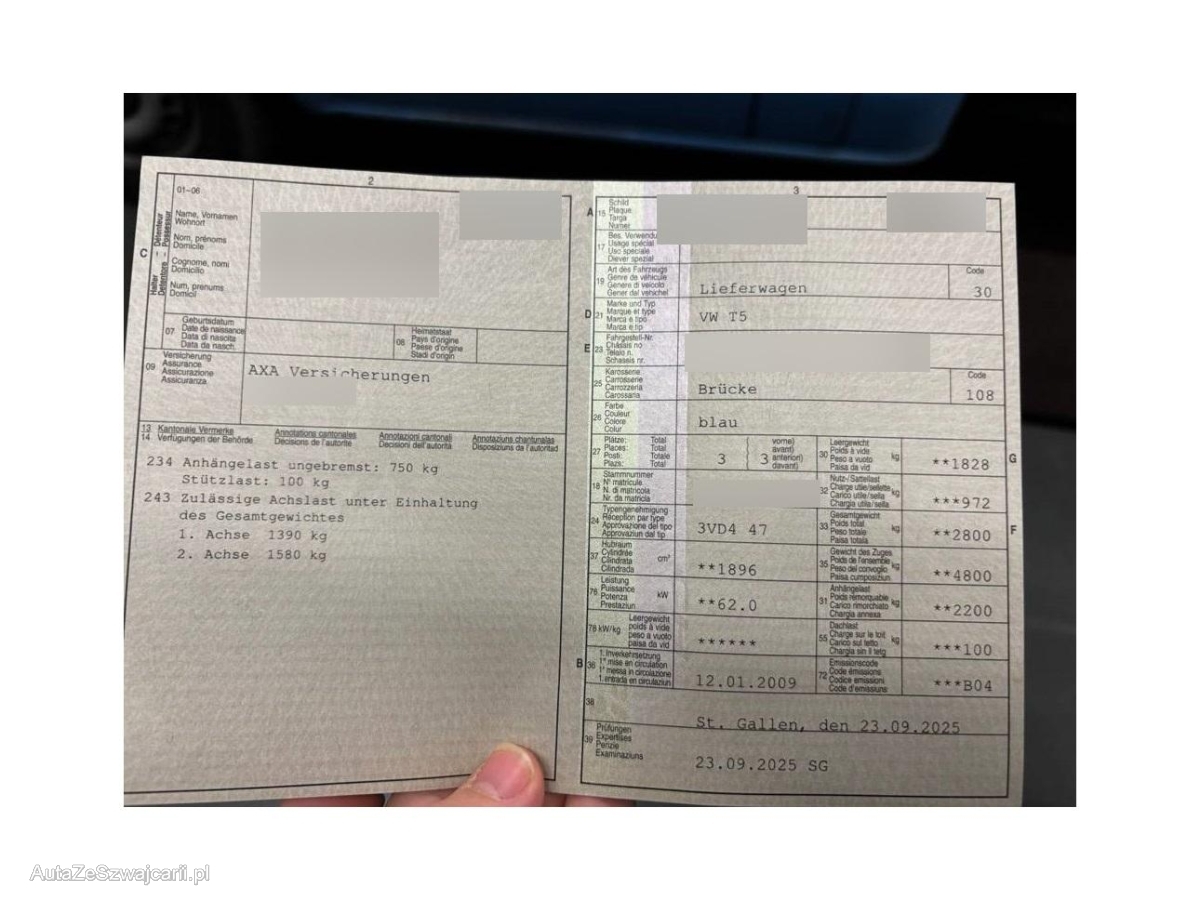 2
01-06
C
Halter Détenteur
Detentore Possessur
Name, Vornamen
Wohnort
Nom, prénoms
Domicile
Cognome, nomi
Domicilio
Num, prenums
Domicil
07
Geburtsdatum
Date de naissance
Data di nascita
Data da nasch.
08
Heimatstaat
Pays d'origine
Paese d'origine
Stadi d'origin
09
Versicherung
Assurance
Assicurazione
Assicuranza
AXA Versicherungen
13 Kantonale Vermerke
14 Verfügungen der Behörde
Annotations cantonales
Décisions de l'autorité
Annotazioni cantonali
Decisioni dell'autorità
Annotaziuns chantunalas
Disposiziuns da l'autoritad
234 Anhängelast ungebremst: 750 kg
Stützlast: 100 kg
243 Zulässige Achslast unter Einhaltung
des Gesamtgewichtes
1. Achse 1390 kg
2. Achse 1580 kg
3
A 15
Schild
Plaque
Targa
Numer
17
Bes. Verwendu
Usage spécial
Uso speciale
Diever spezial
19
Art des Fahrzeugs
Genre de véhicule
Genere di veicolo
Gener dal vehichel
Lieferwagen
Code
30
D 21
Marke und Typ
Marque et type
Marca e tipo
Marca e tip
VW T5
E 23
Fahrgestell-Nr.
Châssis no
Telaio n.
Schassis nr.
25
Karosserie
Carrosserie
Carrozzeria
Carossaria
Brücke
Code
108
26
Farbe
Couleur
Colore
Colur
blau
27
Plätze: Total
Places: Total
Posti: Totale
Plazs: Total
3
3
vorne)
avant)
anteriori)
davant)
30
Leergewicht
Poids à vide
Peso a vuoto
Paisa da vid
kg
**1828
G
18
Stammnummer
N° matricule
N. di matricola
Nr. da matricla
32
Nutz-/Sattellast
Charge utile/sellette
Carico utile/sella
Chargia utila/sella
kg
***972
24
Typengenehmigung
Réception par type
Approvazione del tipo
Approvaziun dal tip
3VD4 47
33
Gesamtgewicht
Poids total
Peso totale
Paisa totala
kg
**2800
F
37
Hubraum
Cylindrée
Cilindrata
Cilindrada
cm³
**1896
35
Gewicht des Zuges
Poids de l'ensemble
Peso del convoglio
Paisa cumposiziun
kg
**4800
76
Leistung
Puissance
Potenza
Prestaziun
kW
**62.0
31
Anhängelast
Poids remorquable
Carico rimorchiato
Chargia annexa
kg
**2200
78 kW/kg
Leergewicht
poids à vide
peso a vuoto
paisa da vid
******
55
Dachlast
Charge sur le toit
Carico sul tetto
Chargia sin il tetg
kg
***100
B 36
1. Inverkehrsetzung
1re mise en circulation
1a messa in circolazione
1. entrada en circulaziun
12.01.2009
72
Emissionscode
Code émissions
Codice emissioni
Code d'emissiuns
***B04
38
St. Gallen, den 23.09.2025
39
Prüfungen
Expertises
Perizie
Examinaziuns
23.09.2025 SG
AutaZeSzwajcarii.pl